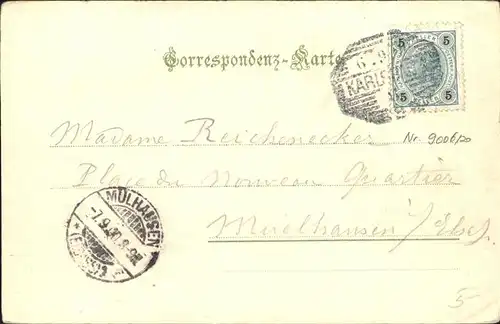 Correspondenz-Karte
5 5
5 5
KARLS
Madame Reichenecker
Nr. 9006/20
Place du Nouveau Quartier
Muelhausen i/ Els.
MÜLHAUSEN
5